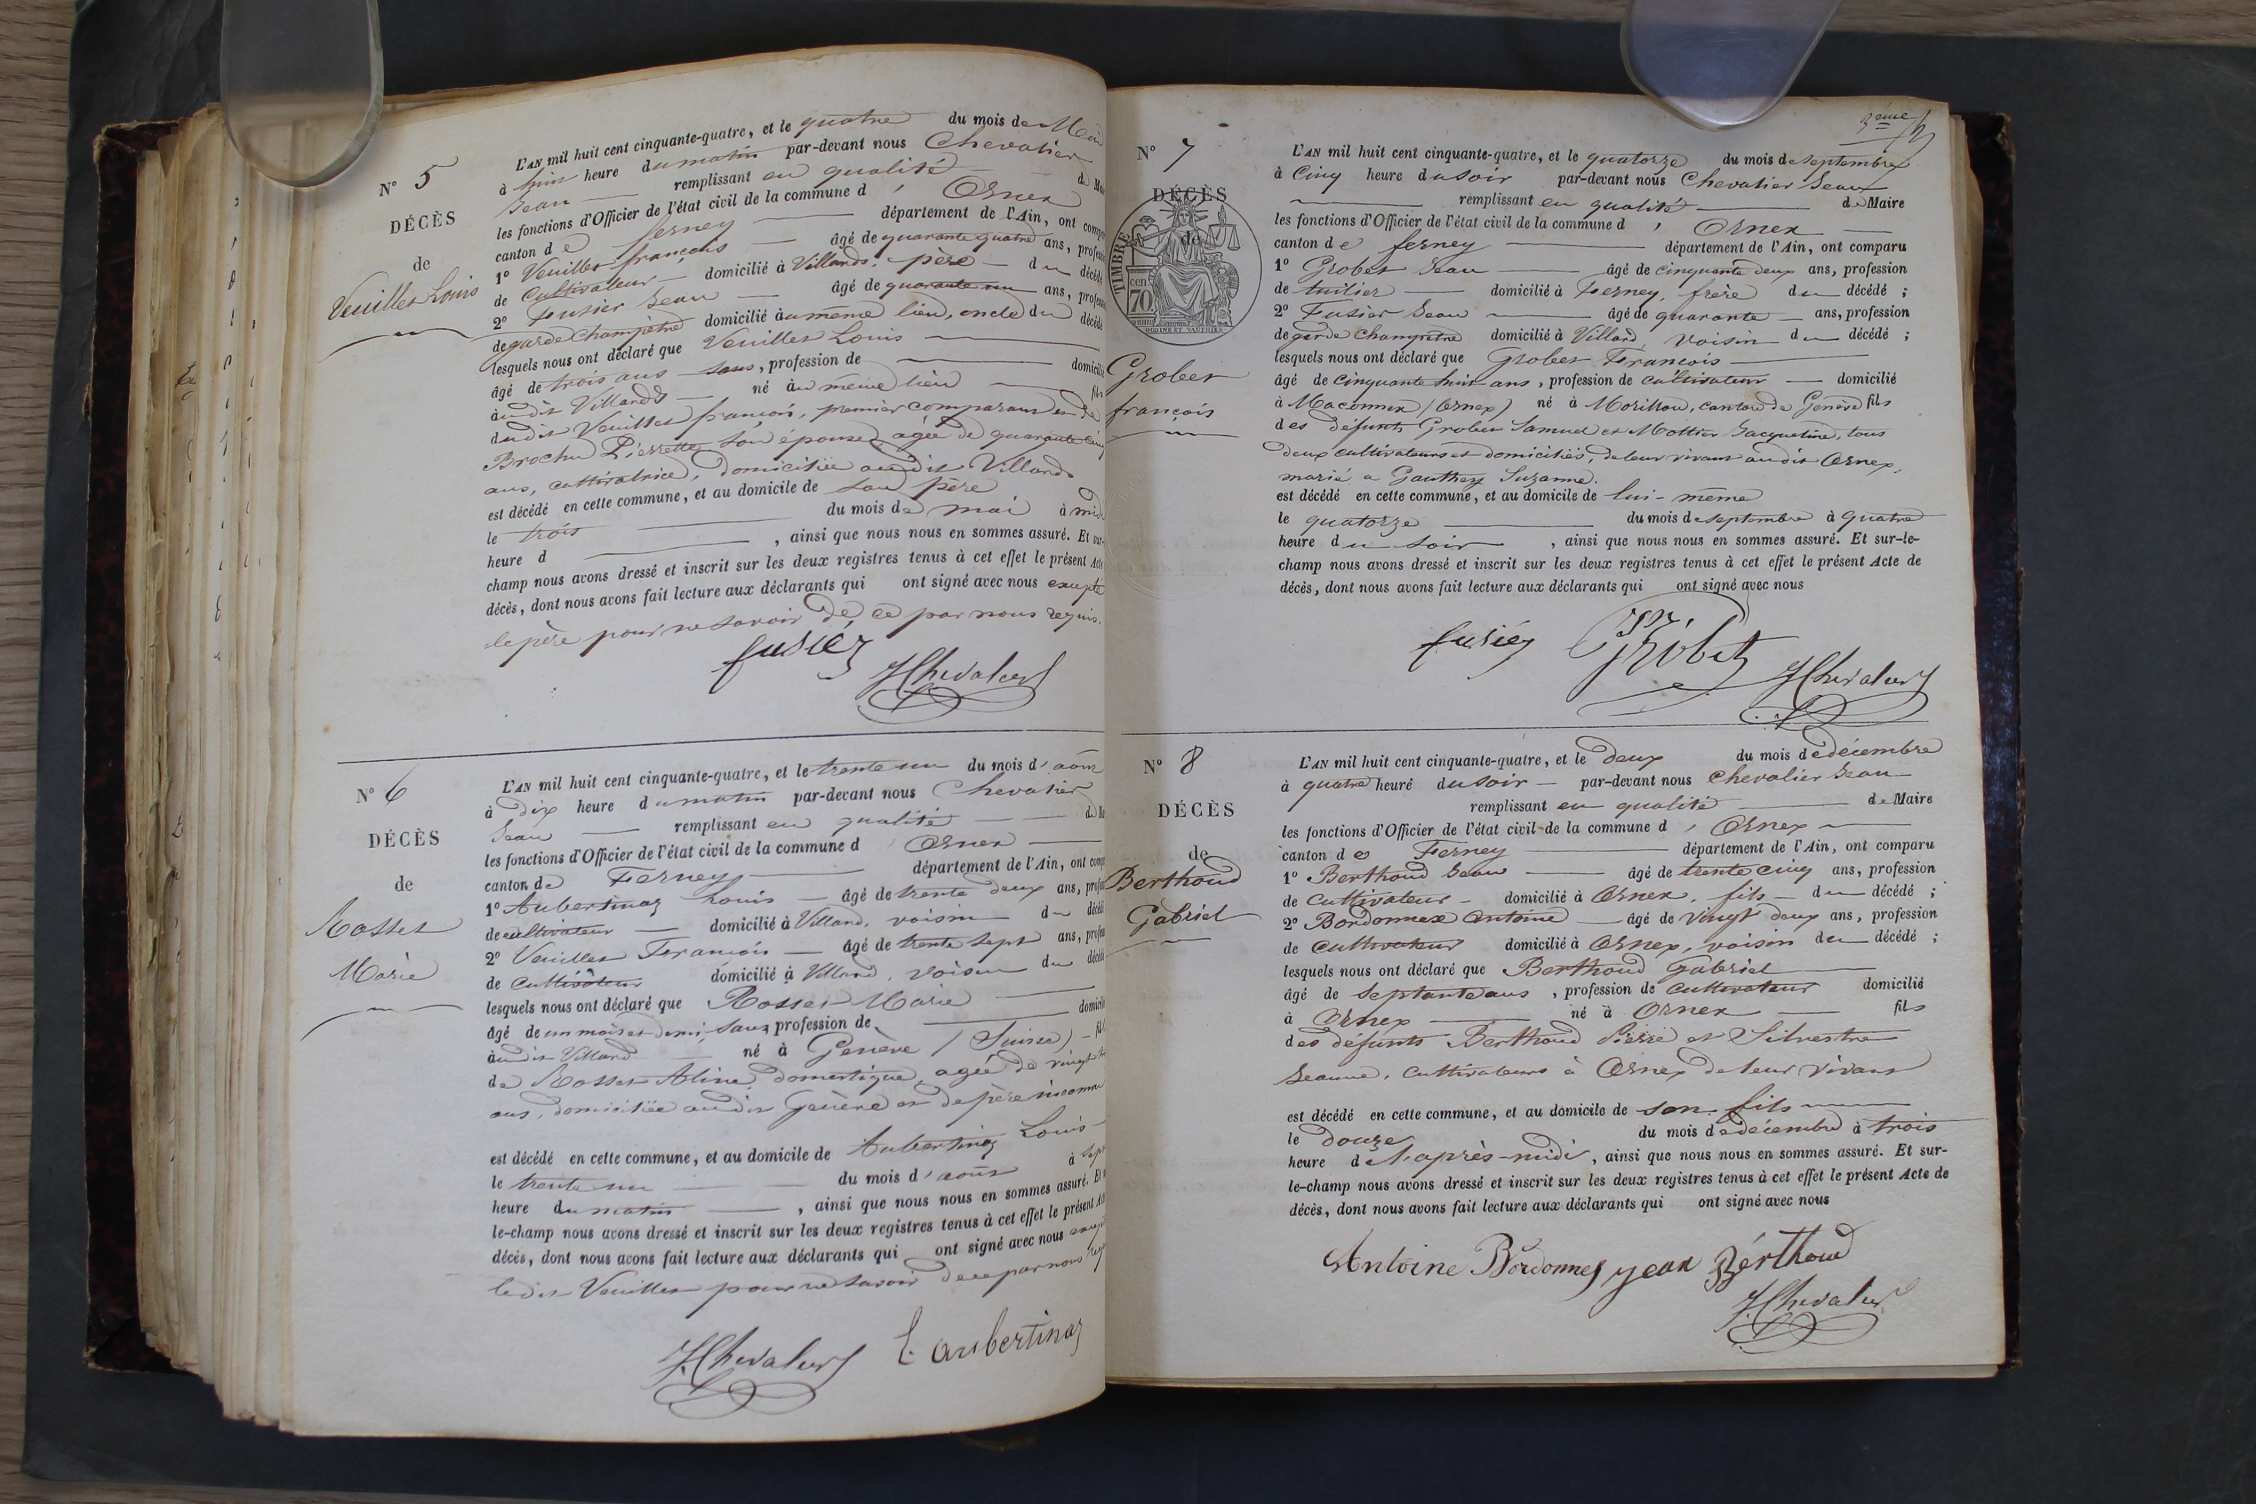 N° 5
DÉCÈS
de
Veuillet Louis
L'AN mil huit cent cinquante-quatre, et le quatre du mois de Mai
à huit heure du matin par-devant nous Chevalier
Jean remplissant en qualité de
les fonctions d'Officier de l'état civil de la commune d' Ornex
canton de ferney département de l'Ain, ont
1° Veuillet françois âgé de quarante quatre ans,
de Cultivateur domicilié à Villards, père du décédé
2° Fusier Jean âgé de quarante un ans,
de garde champêtre domicilié au même lieu, oncle du décédé
lesquels nous ont déclaré que Veuillet Louis
âgé de trois ans sans, profession de domicilié
audit Villards né au même lieu fils
dudit Veuillet françois, premier comparant et de
Brochu Pierrette son épouse, agée de quarante cinq
ans, cultivatrice, domiciliée audit Villards
est décédé en cette commune, et au domicile de son père
le trois du mois de mai à midi
heure d , ainsi que nous nous en sommes assuré. Et sur-
champ nous avons dressé et inscrit sur les deux registres tenus à cet effet le présent Acte
décès, dont nous avons fait lecture aux déclarants qui ont signé avec nous excepté
le père pour ne savoir de ce par nous requis.
fusiéz
J Chevalier
N° 6
DÉCÈS
de
Rosset
Marie
L'AN mil huit cent cinquante-quatre, et le trente un du mois d'août
à dix heure du matin par-devant nous Chevalier
Jean remplissant en qualité de
les fonctions d'Officier de l'état civil de la commune d' Ornex
canton de Ferney département de l'Ain, ont
1° Aubertinaz Louis âgé de trente deux ans,
de cultivateur domicilié à Villard, voisin du
2° Veuillet François âgé de trente sept ans,
de cultivateur domicilié à Villard, voisin du
lesquels nous ont déclaré que Rosset Marie
âgé de un mois et demi, sans profession de domicilié
audit Villard né à Genève (Suisse) fil
de Rosset Aline, domestique, agée de vingt
ans, domiciliée audit Genève et de père inconnu
est décédé en cette commune, et au domicile de Aubertinaz Louis
le trente un du mois d'août à sept
heure du matin , ainsi que nous nous en sommes assuré. Et
le-champ nous avons dressé et inscrit sur les deux registres tenus à cet effet le présent
décès, dont nous avons fait lecture aux déclarants qui ont signé avec nous excepté
ledit Veuillet pour ne savoir de ce par nous
J. Chevalier
L. aubertinaz
3ème
N° 7
DÉCÈS
de
TIMBRE
70 cen
Grobet
françois
L'AN mil huit cent cinquante-quatre, et le quatorze du mois de septembre
à Cinq heure du soir par-devant nous Chevalier Jean
remplissant en qualité de Maire
les fonctions d'Officier de l'état civil de la commune d' Ornex
canton de ferney département de l'Ain, ont comparu
1° Grobet Jean âgé de cinquante deux ans, profession
de tuilier domicilié à Ferney, frère du décédé ;
2° Fusier Jean âgé de quarante ans, profession
de garde champêtre domicilié à Villard, voisin du décédé ;
lesquels nous ont déclaré que Grobet François
âgé de cinquante huit ans, profession de cultivateur domicilié
à Maconnex (Ornex) né à Morillon, canton de Genève fils
des défunts Grobet Samuel et Mottier Jacqueline, tous
deux cultivateurs et domiciliés, de leur vivant audit Ornex,
marié a Gauthey Suzanne.
est décédé en cette commune, et au domicile de lui-même
le quatorze du mois de septembre à quatre
heure du soir , ainsi que nous nous en sommes assuré. Et sur-le-
champ nous avons dressé et inscrit sur les deux registres tenus à cet effet le présent Acte de
décès, dont nous avons fait lecture aux déclarants qui ont signé avec nous
fusiéz
Grobet
J Chevalier
N° 8
DÉCÈS
de
Berthoud
Gabriel
L'AN mil huit cent cinquante-quatre, et le deux du mois de décembre
à quatre heure du soir par-devant nous Chevalier Jean
remplissant en qualité de Maire
les fonctions d'Officier de l'état civil de la commune d' Ornex
canton de Ferney département de l'Ain, ont comparu
1° Berthoud Jean âgé de trente cinq ans, profession
de cultivateur domicilié à Ornex, fils du décédé ;
2° Bordonnex Antoine âgé de vingt deux ans, profession
de cultivateur domicilié à Ornex, voisin du décédé ;
lesquels nous ont déclaré que Berthoud Gabriel
âgé de septante ans, profession de cultivateur domicilié
à Ornex né à Ornex fils
des défunts Berthoud Pierre et Silvestre
Jeanne, cultivateurs à Ornex de leur vivant
est décédé en cette commune, et au domicile de son fils
le douze du mois de décembre à trois
heure de l'après-midi , ainsi que nous nous en sommes assuré. Et sur-
le-champ nous avons dressé et inscrit sur les deux registres tenus à cet effet le présent Acte de
décès, dont nous avons fait lecture aux déclarants qui ont signé avec nous
Antoine Bordonnex jean Bérthoud
J. Chevalier